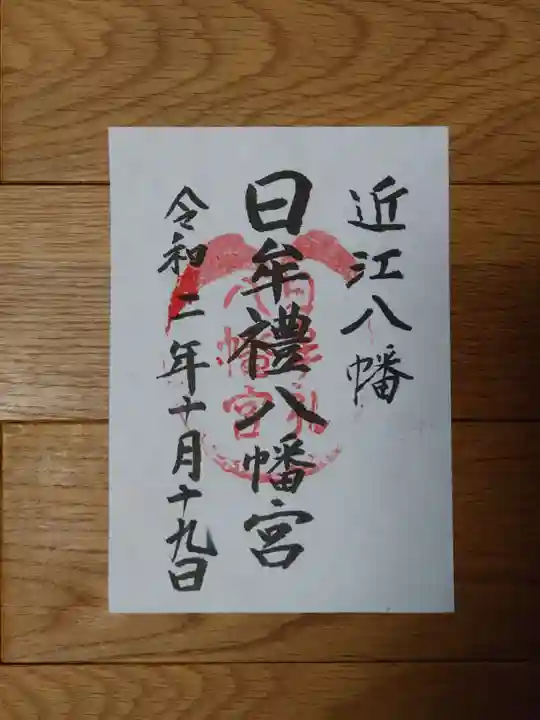 近江八幡
日牟禮八幡宮
令和二年十月十九日
八幡宮